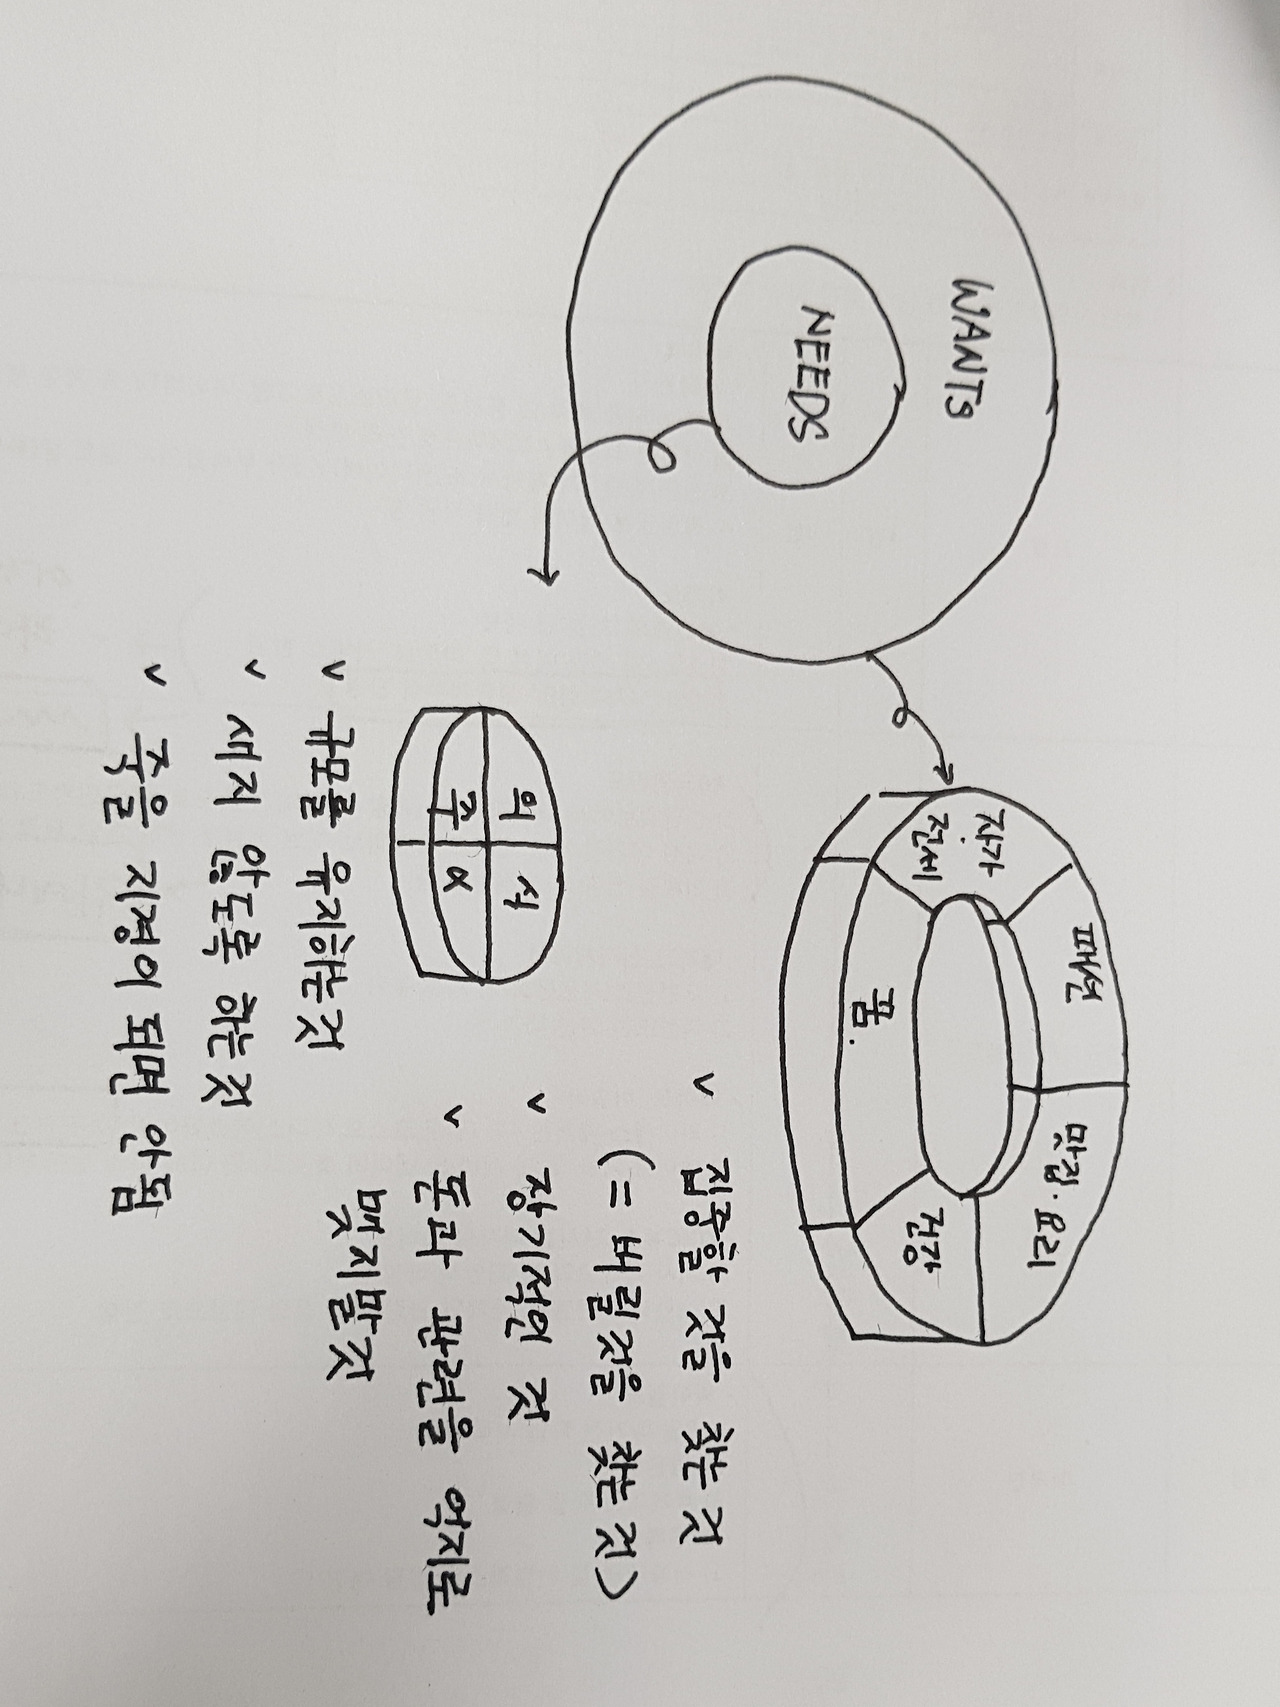 WANTS
NEEDS
자가
전세
패션
맛집·요리
꿈.
건강
의
식
주
α
v 집중할 것을 찾는 것
(= 버릴것을 찾는 것)
v 장기적인 것
v 돈과 관련을 억지로
맺지말것
v 규모를 유지하는것
v 새지 않도록 하는 것
v 죽을 지경이 되면 안됨